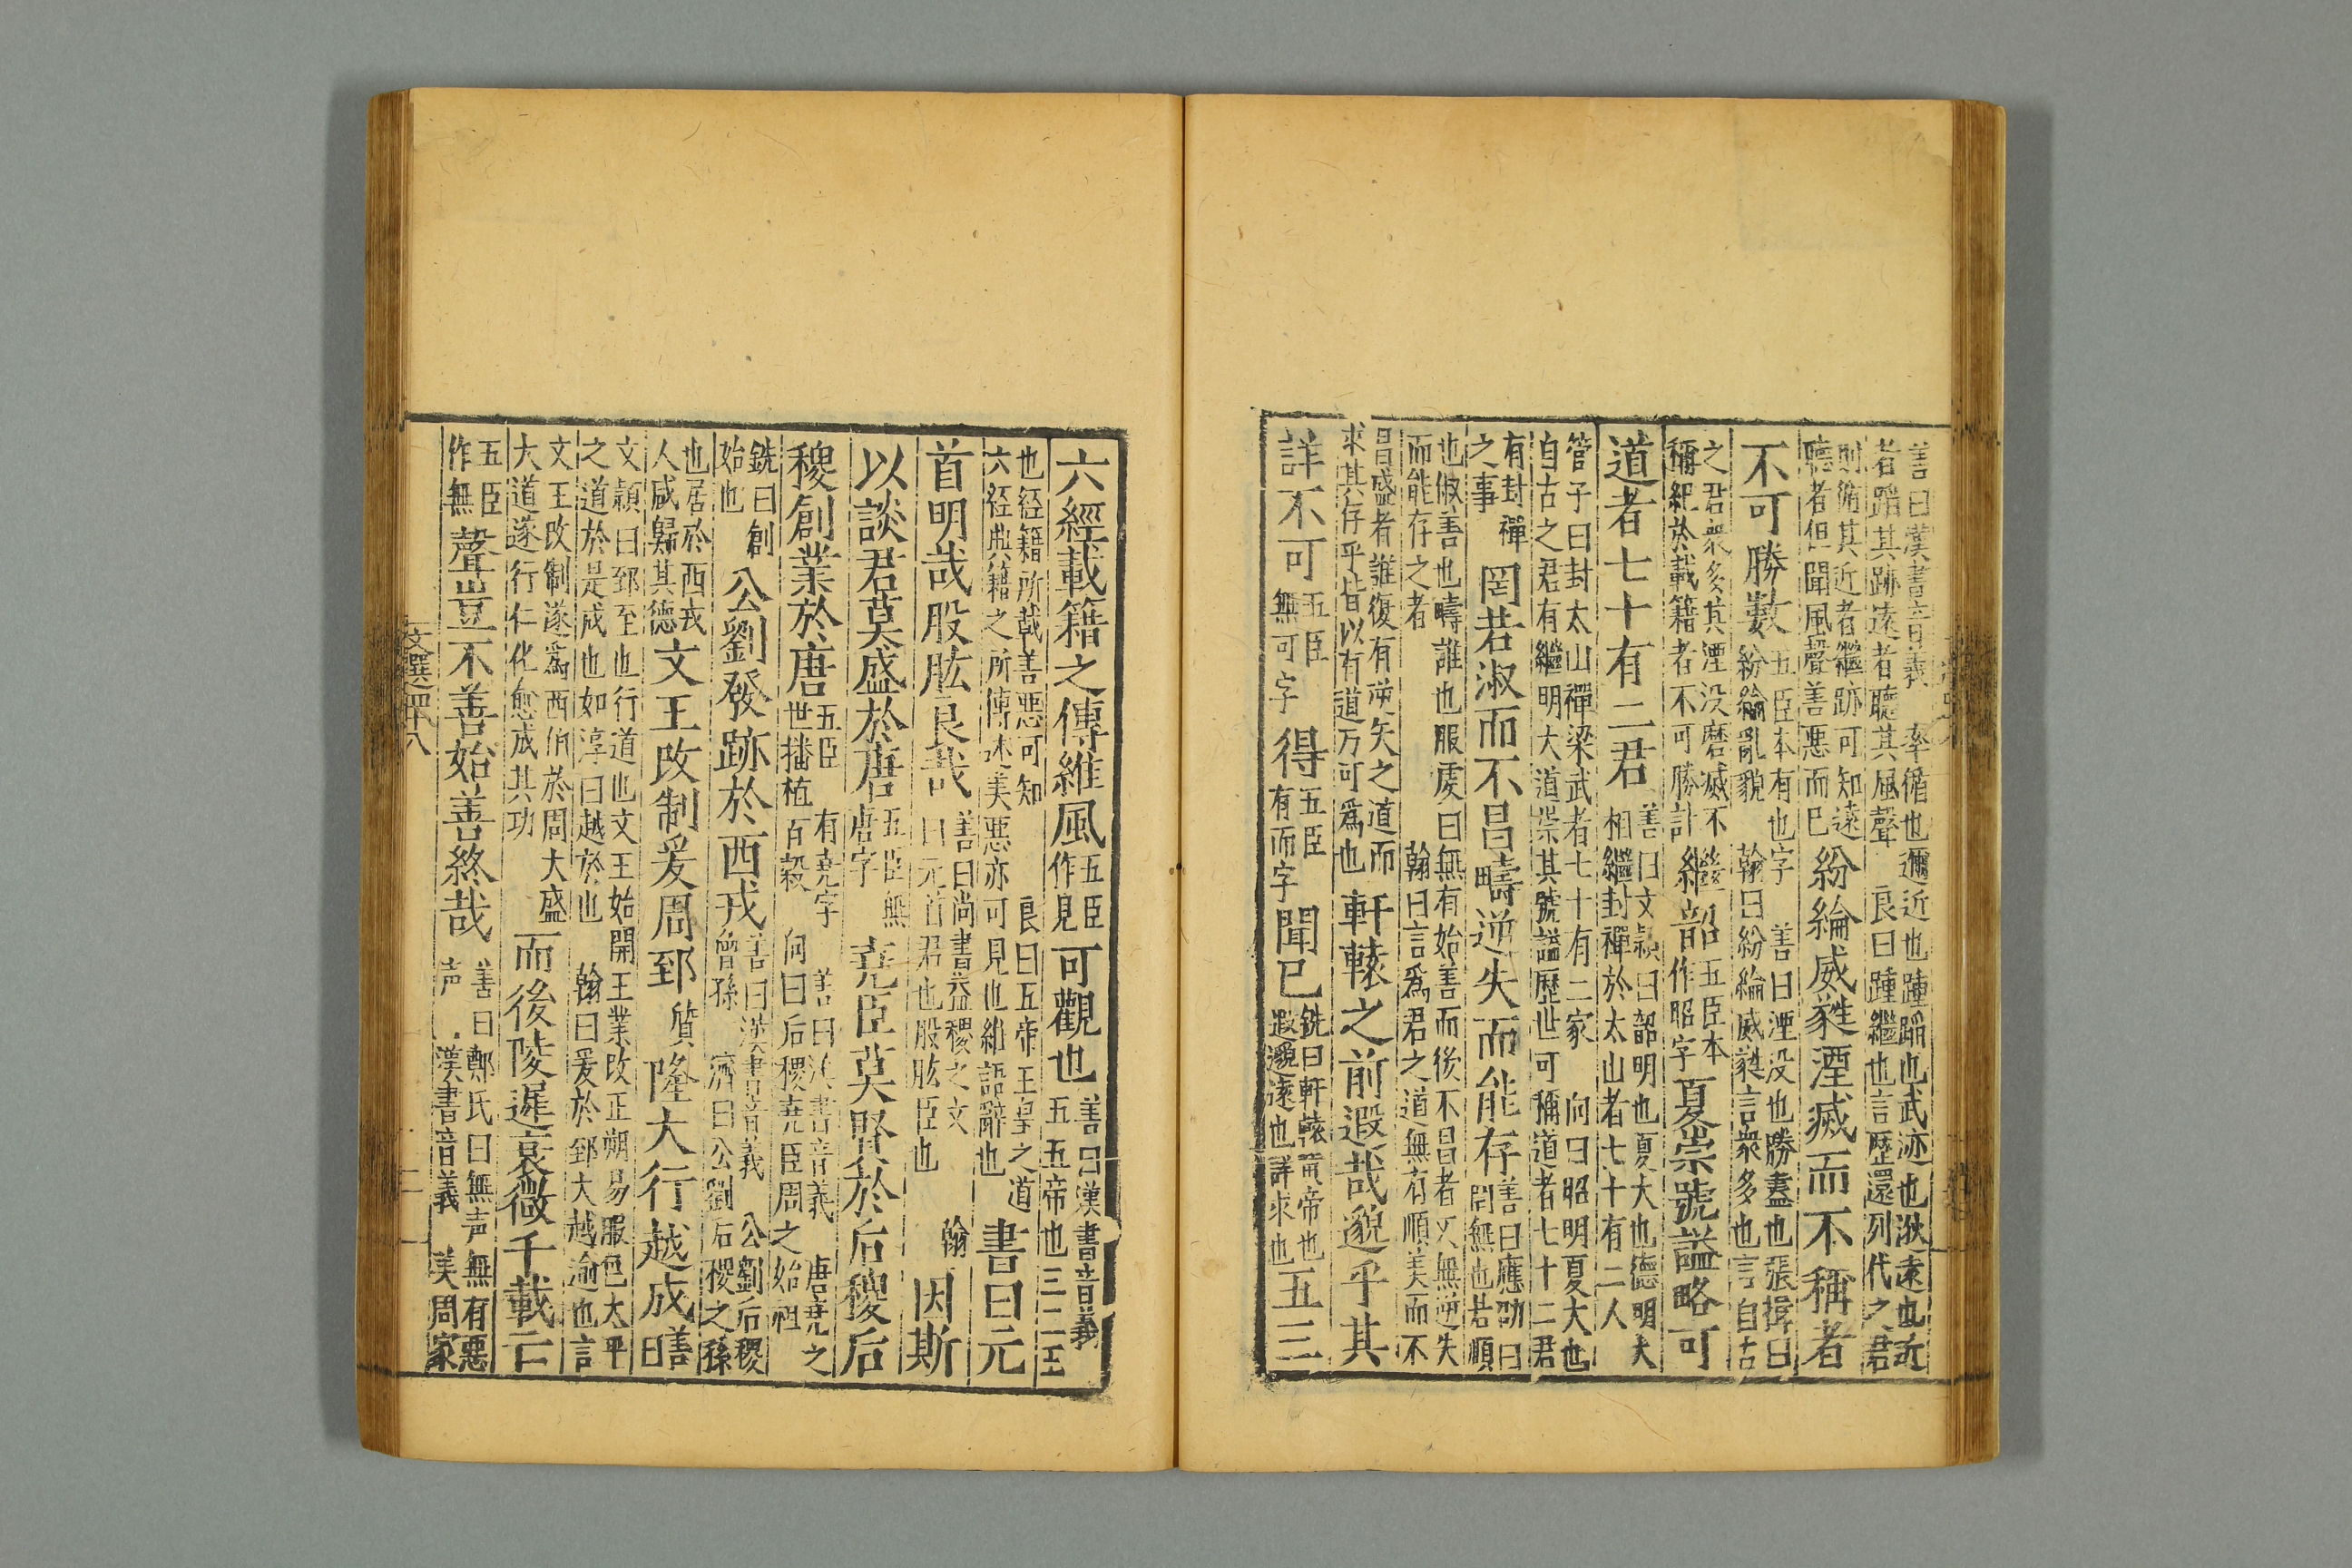 善曰漢書音義　率循也邇近也踵蹈也武迹也逖遠也近
者蹈其跡遠者聽其風聲　良曰踵繼也言歷還列代之君
則循其近者繼跡可知遠
聽者但聞風聲善惡而已
紛綸威蕤湮滅而不稱者
不可勝數
五臣本有也字　善曰湮没也勝盡也張揖曰
紛綸亂貌　翰曰紛綸威蕤言衆多也言自古
之君衆多其湮没磨滅不
稱紀於載籍者不可勝計
繼韶
五臣本
作昭字
夏崇號諡略可
道者七十有二君
善曰文穎曰韶明也夏大也德明大
相繼封禪於太山者七十有二人
管子曰封太山禪梁武者七十有二家　向曰昭明夏大也
自古之君有繼明大道崇其號諡歷世可稱道者七十二君
有封禪
之事
罔若淑而不昌疇逆失而能存
善曰應劭曰
罔無也若順
也俶善也疇誰也服虔曰無有始善而後不昌者又無逆失
而能存之者　翰曰言爲君之道無有順美而不
昌盛者誰復有逆失之道而
求其存乎皆以有道万可爲也
軒轅之前遐哉邈乎其
詳不可
五臣
無可字
得
五臣
有而字
聞已
銑曰軒轅黃帝也
遐邈遠也詳求也
五三
六經載籍之傳維風
五臣
作見
可觀也
善曰漢書音義
五五帝也三二王
也經籍所載善惡可知　良曰五帝王皇之道
六經典籍之所傳述美惡亦可見也維語辭也
書曰元
首明哉股肱良哉
善曰尚書益稷之文　翰
曰元首君也股肱臣也
因斯
以談君莫盛於唐
五臣無
唐字
堯臣莫賢於后稷后
稷創業於唐
五臣　有堯字　善曰漢書音義　唐堯之
世播植百穀　向曰后稷堯臣周之始祖
銑曰創
始也
公劉發跡於西戎
善曰漢書音義　公劉后稷
曾孫　濟曰公劉后稷之孫
也居於西戎
人咸歸其德
文王改制爰周郅
質
隆大行越成
善
曰
文穎曰郅至也行道也文王始開王業改正朔易服色太平
之道於是成也如淳曰越於也　翰曰爰於郅大越逾也言
文王改制遂爲西伯於周大盛
大道遂行仁化愈成其功
而後陵遲衰微千載亡
五臣
作無
聲豈不善始善終哉
善曰鄭氏曰無声無有惡
声　漢書音義　美周家
文選四十八